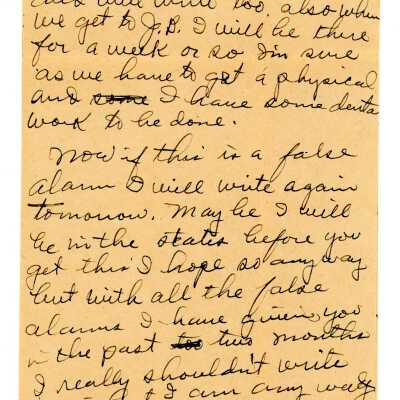 and will write too. also when
we get to J.B. I will be there
for a week or so I'm sure
as we have to get a physical
and some I have some denta
work to be done.
Now if this is a false
alarm I will write again
tomorrow. Maybe I will
be in the states before you
get this I hope so anyway
but with all the false
alarms I have given you
in the past too two months
I really shouldn't write
I am any way